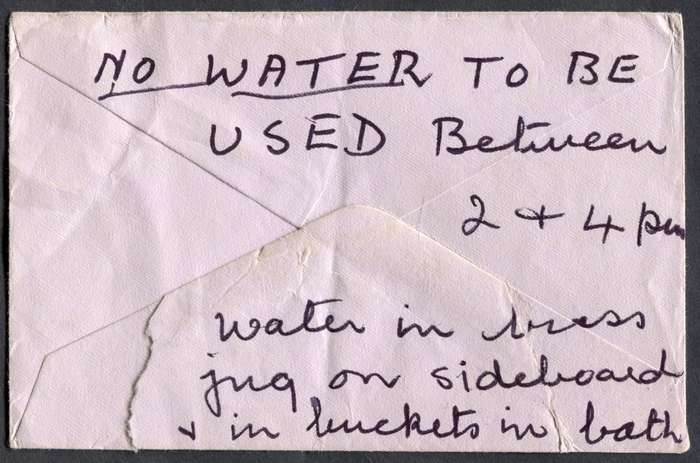 NO WATER TO BE
USED Between
2 + 4 pm
water in brass
jug on sideboard
+ in buckets in bath